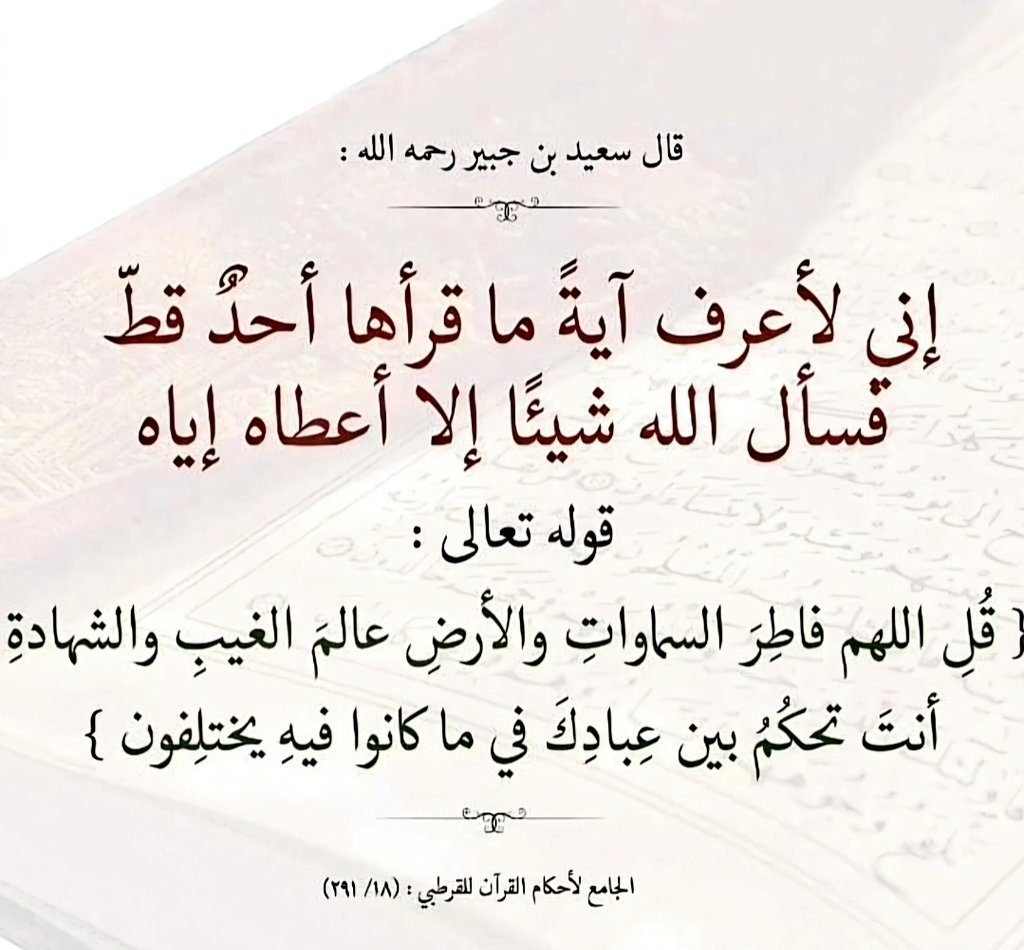 قال سعيد بن جبير رحمه الله :
إني لأعرف آيةً ما قرأها أحدٌ قطّ
فسأل الله شيئًا إلا أعطاه إياه
قوله تعالى :
{ قُلِ اللهم فاطِرَ السماواتِ والأرضِ عالمَ الغيبِ والشهادةِ
أنتَ تحكُمُ بين عِبادِكَ في ما كانوا فيهِ يختلِفون }
الجامع لأحكام القرآن للقرطبي : (١٨/ ٢٩١)